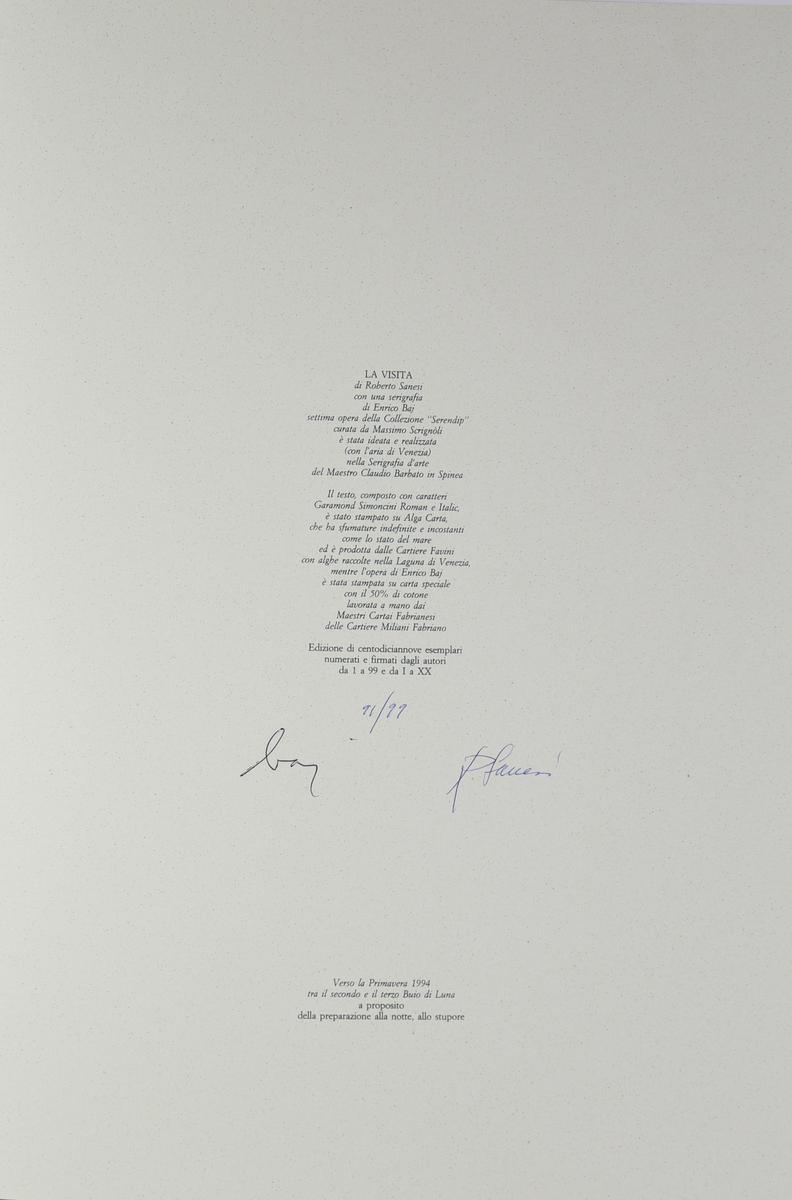 LA VISITA
di Roberto Sanesi
con una serigrafia
di Enrico Baj
settima opera della Collezione "Serendip"
curata da Massimo Scrignòli
è stata ideata e realizzata
(con l'aria di Venezia)
nella Serigrafia d'arte
del Maestro Claudio Barbato in Spinea
Il testo, composto con caratteri
Garamond Simoncini Roman e Italic,
è stato stampato su Alga Carta,
che ha sfumature indefinite e incostanti
come lo stato del mare
ed è prodotta dalle Cartiere Favini
con alghe raccolte nella Laguna di Venezia,
mentre l'opera di Enrico Baj
è stata stampata su carta speciale
con il 50% di cotone
lavorata a mano dai
Maestri Cartai Fabrianesi
delle Cartiere Miliani Fabriano
Edizione di centodiciannove esemplari
numerati e firmati dagli autori
da 1 a 99 e da I a XX
91/99
baj R. Sanesi
Verso la Primavera 1994
tra il secondo e il terzo Buio di Luna
a proposito
della preparazione alla notte, allo stupore